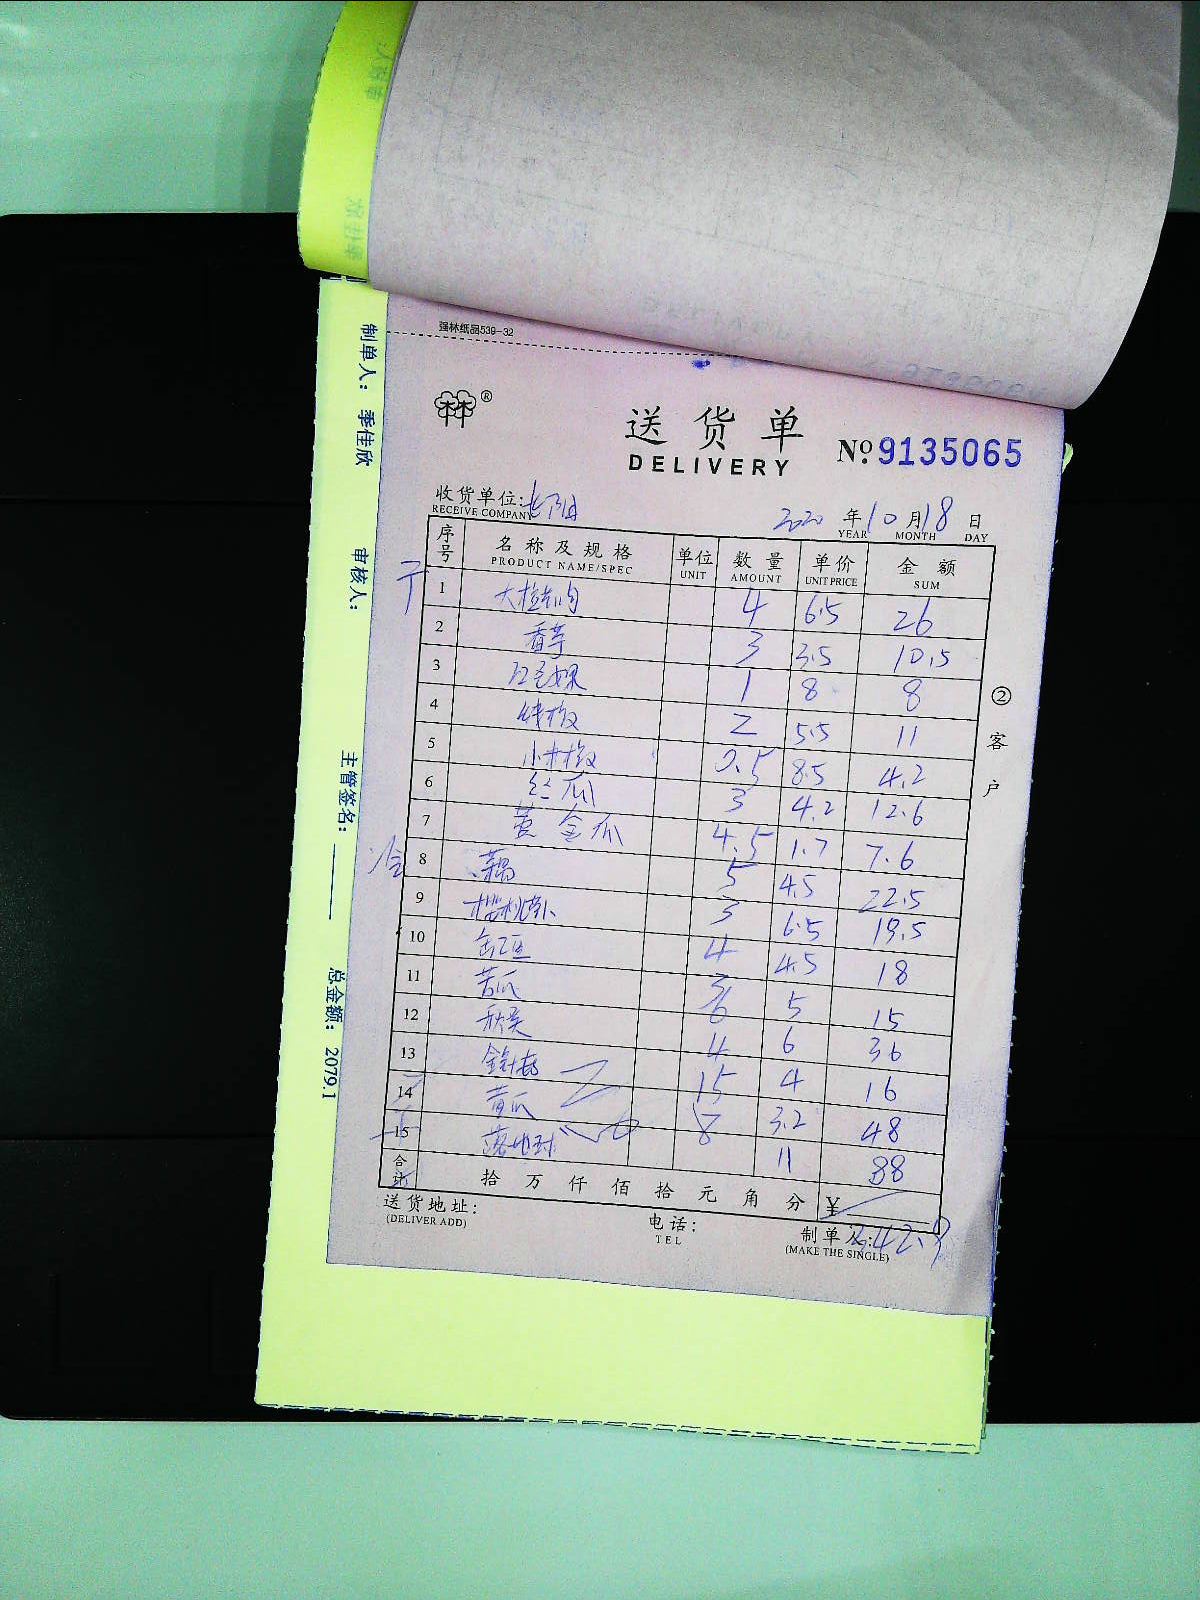 强林纸品539-32
送货单
DELIVERY
№ 9135065
收货单位:
RECEIVE COMPANY
2020 年 10 月 18 日
YEAR MONTH DAY
序号 名称及规格 单位 数量 单价 金额
PRODUCT NAME/SPEC UNIT AMOUNT UNIT PRICE SUM
1 4 6.5 26
2 香芋 3 3.5 10.5
3 1 8 8
4 线椒 2 5.5 11
5 小米椒 0.5 8.5 4.2
6 丝瓜 3 4.2 12.6
7 黄金瓜 4.5 1.7 7.6
8 5 4.5 22.5
9 樱桃萝卜 3 6.5 19.5
10 4 4.5 18
11 苦瓜 3 5 15
12 秋葵 6 6 36
13 4 4 16
14 黄瓜 15 3.2 48
15 8 11 88
合计 拾 万 仟 佰 拾 元 角 分 ¥
342.9
送货地址:
(DELIVER ADD)
电话:
TEL
制单人:
(MAKE THE SINGLE)
② 客户
制单人: 季佳欣
审核人:
主管签名:
总金额: 2079.1